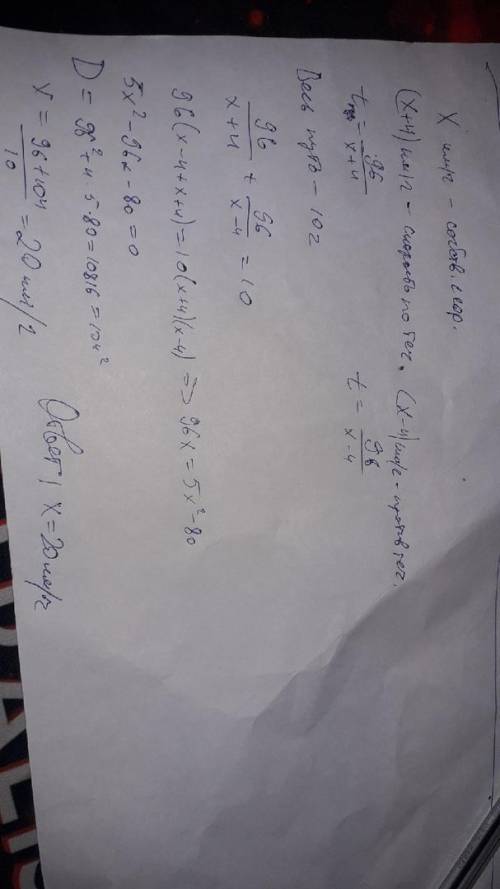 X км/ч - собств. скор.
(x+4) км/ч - скорость по теч. (x-4) км/ч - против теч.
t = 96/(x+4) t = 96/(x-4)
Весь путь - 10г
96/(x+4) + 96/(x-4) = 10
96(x-4+x+4)=10(x+4)(x-4) => 96x = 5x²-80
5x²-96x-80=0
D = 96²+4·5·80=10816=104²
X = (96+104)/10 = 20 км/г
Ответ | x = 20 км/ч